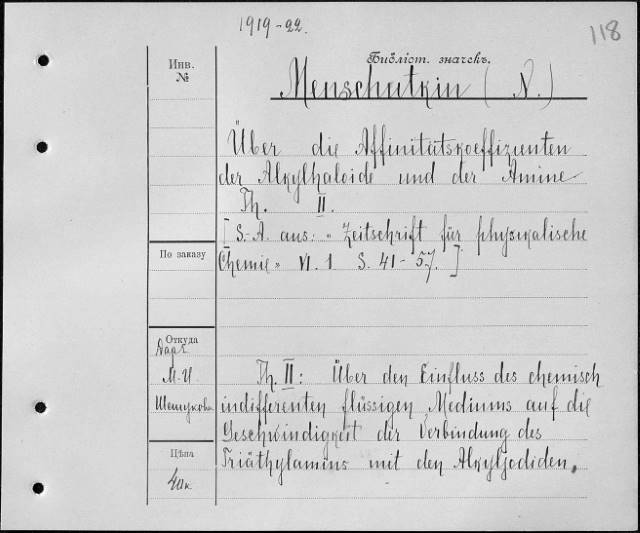 1919-22.
118
Инв.
№
Библіот. значекъ.
Menschutkin (N.)
Über die Affinitätskoeffizienten
der Alkylhaloide und der Amine
Th. II.
[S.-A. aus: "Zeitschrift für physikalische
По заказу
Chemie" VI. 1 S. 41-57.]
Откуда
Даръ
М.И.
Шешукова
Th. II: Über den Einfluss des chemisch
indifferenten flüssigen Mediums auf die
Geschwindigkeit der Verbindung des
Triäthylamins mit den Alkyljodiden.
Цѣна
40к